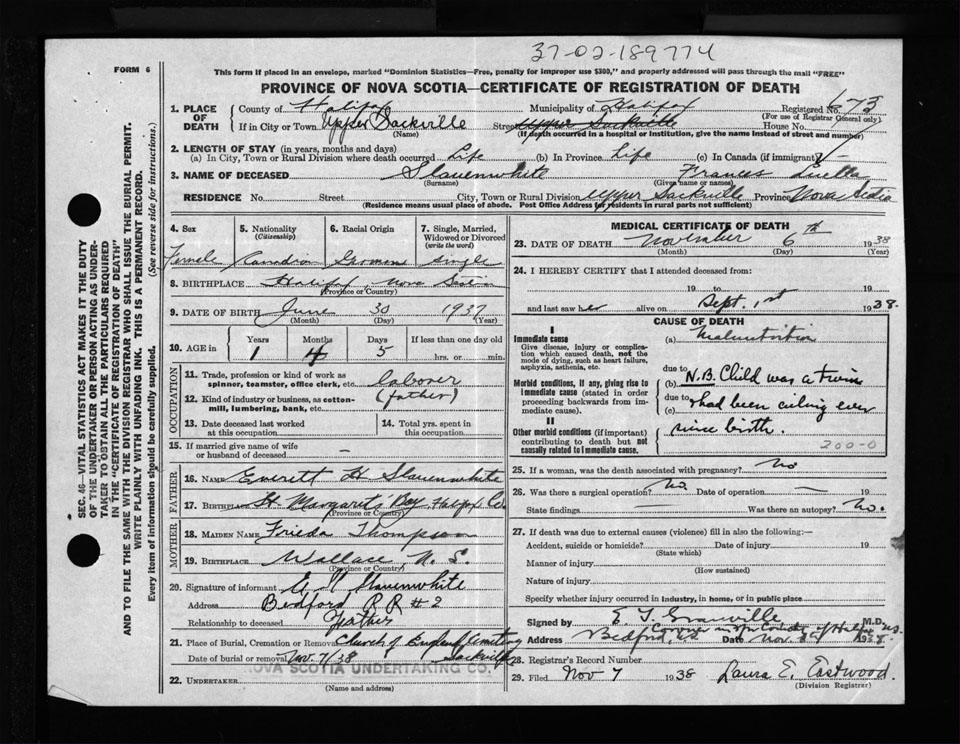 37-02-189774
FORM 6
This form if placed in an envelope, marked "Dominion Statistics—Free, penalty for improper use $300," and properly addressed will pass through the mail "FREE"
PROVINCE OF NOVA SCOTIA—CERTIFICATE OF REGISTRATION OF DEATH
SEC. 46—VITAL STATISTICS ACT MAKES IT THE DUTY
OF THE UNDERTAKER OR PERSON ACTING AS UNDER-
TAKER TO OBTAIN ALL THE PARTICULARS REQUIRED
IN THE "CERTIFICATE OF REGISTRATION OF DEATH"
AND TO FILE THE SAME WITH THE DIVISION REGISTRAR WHO SHALL ISSUE THE BURIAL PERMIT.
WRITE PLAINLY WITH UNFADING INK. THIS IS A PERMANENT RECORD.
Every item of information should be carefully supplied. (See reverse side for instructions.)
1. PLACE OF DEATH County of Halifax Municipality of Halifax Registered No. 673
(For use of Registrar General only)
If in City or Town Upper Sackville Street Upper Sackville House No.
(Name) (If death occurred in a hospital or institution, give the name instead of street and number)
2. LENGTH OF STAY (in years, months and days)
(a) In City, Town or Rural Division where death occurred Life (b) In Province Life (c) In Canada (if immigrant) —
3. NAME OF DECEASED Slauenwhite Frances Luella
(Surname) (Given name or names)
RESIDENCE No. Street City, Town or Rural Division Upper Sackville Province Nova Scotia
(Residence means usual place of abode. Post Office Address for residents in rural parts not sufficient)
4. Sex 5. Nationality (Citizenship) 6. Racial Origin 7. Single, Married, Widowed or Divorced (write the word)
Female Canadian German Single
8. BIRTHPLACE Halifax, Nova Scotia
(Province or Country)
9. DATE OF BIRTH June 30 1937
(Month) (Day) (Year)
10. AGE in Years Months Days If less than one day old
1 4 5 hrs. or min.
OCCUPATION
11. Trade, profession or kind of work as
spinner, teamster, office clerk, etc. laborer
12. Kind of industry or business, as cotton-
mill, lumbering, bank, etc. (father)
13. Date deceased last worked
at this occupation
14. Total yrs. spent in
this occupation
15. If married give name of wife
or husband of deceased —
FATHER
16. NAME Everett H Slauenwhite
17. BIRTHPLACE St. Margaret's Bay, Halifax Co.
(Province or Country)
MOTHER
18. MAIDEN NAME Frieda Thompson
19. BIRTHPLACE Wallace N. S.
(Province or Country)
20. Signature of informant E H Slauenwhite
Address Bedford RR #2
Relationship to deceased Father
21. Place of Burial, Cremation or Removal Church of England Cemetery
Sackville
Date of burial or removal Nov. 7/38
NOVA SCOTIA UNDERTAKING CO.
22. UNDERTAKER
(Name and address)
MEDICAL CERTIFICATE OF DEATH
23. DATE OF DEATH November 6th 1938
(Month) (Day) (Year)
24. I HEREBY CERTIFY that I attended deceased from:
19 to 19
and last saw her alive on Sept. 1st 1938.
CAUSE OF DEATH
I
Immediate cause
Give disease, injury or compli-
cation which caused death, not the
mode of dying, such as heart failure,
asphyxia, asthenia, etc.
(a) Malnutrition
due to
Morbid conditions, if any, giving rise to
immediate cause (stated in order
proceeding backwards from im-
mediate cause).
(b) N.B. Child was a twin
due to
(c) & had been ailing ever
since birth.
II
Other morbid conditions (if important)
contributing to death but not
causally related to immediate cause.
200-0
25. If a woman, was the death associated with pregnancy? No
26. Was there a surgical operation? No. Date of operation — 19
State findings — Was there an autopsy? No.
27. If death was due to external causes (violence) fill in also the following:—
Accident, suicide or homicide? Date of injury 19
(State which)
Manner of injury
(How sustained)
Nature of injury
Specify whether injury occurred in industry, in home, or in public place
Signed by E T Granville M.D.
Address Bedford, N.S. Date Nov. 1938.
28. Registrar's Record Number
29. Filed Nov 7 1938 Laura E. Eastwood
(Division Registrar)